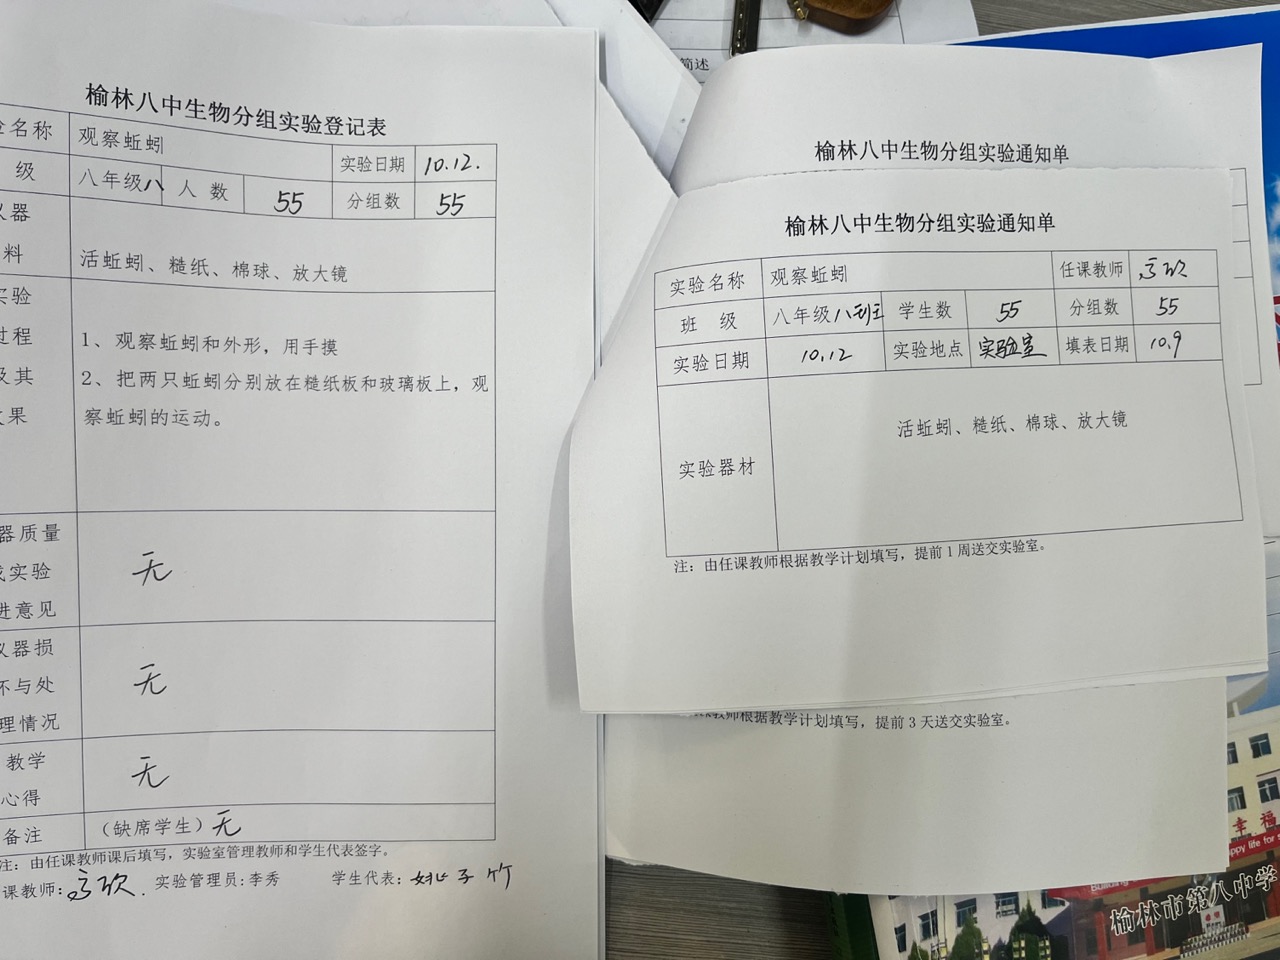 榆林八中生物分组实验登记表
名称 观察蚯蚓 实验日期 10.12.
级 八年级八 人数 55 分组数 55
仪器
料
活蚯蚓、糙纸、棉球、放大镜
实验
过程
及其
效果
1、观察蚯蚓和外形，用手摸
2、把两只蚯蚓分别放在糙纸板和玻璃板上，观
察蚯蚓的运动。
器质量
或实验
进意见
无
仪器损
坏与处
理情况
无
教学
心得
无
备注 （缺席学生）无
注：由任课教师课后填写，实验室管理教师和学生代表签字。
课教师： 实验管理员:李秀 学生代表：姚子竹
简述
榆林八中生物分组实验通知单
榆林八中生物分组实验通知单
实验名称 观察蚯蚓 任课教师
班 级 八年级八班 学生数 55 分组数 55
实验日期 10.12 实验地点 实验室 填表日期 10.9
实验器材 活蚯蚓、糙纸、棉球、放大镜
注：由任课教师根据教学计划填写，提前1周送交实验室。
教师根据教学计划填写，提前3天送交实验室。
幸福
ppy life for
榆林市第八中学